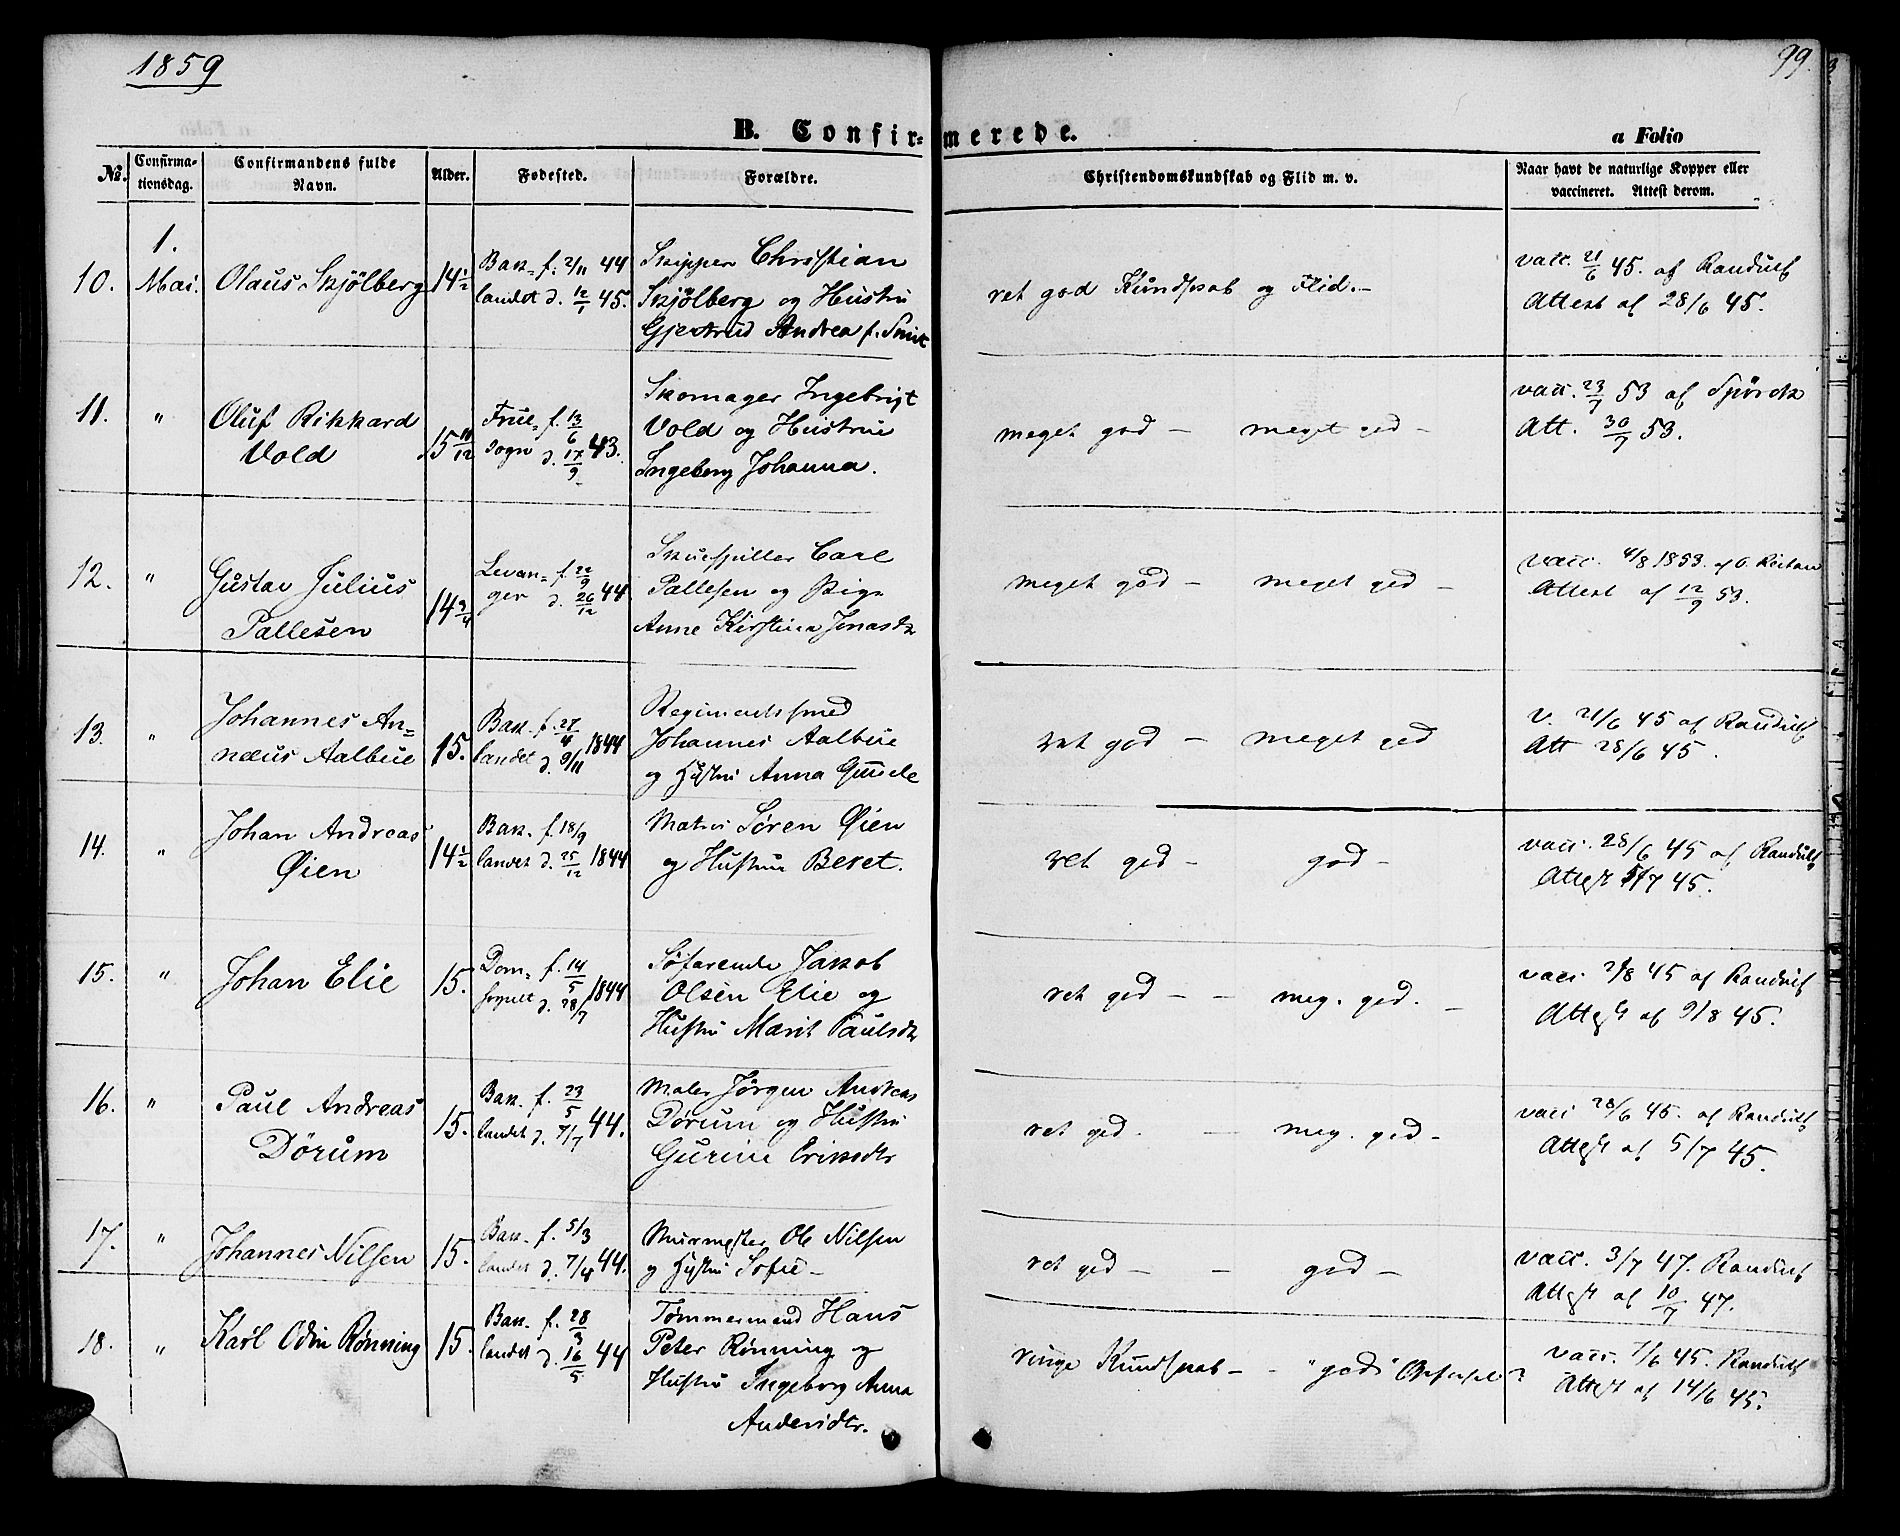 1859
99.
B. Confirmerede.
a Folio
No. Confirmationsdag. Confirmandens fulde Navn. Alder. Fødested. Forældre. Christendomskundskab og Flid m. v. Naar havt de naturlige Kopper eller vaccineret. Attest derom.
1.
10. Mai. Olaus Skjölberg 14 1/2 Bak- f. 2/11 44 Skipper Christian
landet d. 12/1 45. Skjölberg og Hustru
Gjertrud Andrea f. Smit
ret god Kundskab og Flid.-
vacc. 21/6 45. af Randulf
Attest af 28/6 45.
11. " Oluf Rikkard 15 10/12 Frue- f. 13/6 Skomager Ingebrigt
Vold sogn d. 17/9 43. Vold og Hustrue
Ingeberg Johanna.
meget god - meget god -
vacc. 23/7 53 af Spörck
Att. 30/7 53.
12. " Gustav Julius 14 3/4 Levan- f. 22/9 Skuespiller Carl
Pallesen ger d. 26/12 44 Pallesen og Pige
Anne Kirstina Jonasdr
meget god - meget god -
vacc. 4/8 1853. af O. Reitan
Attest af 12/9 53.
13. " Johannes An- 15. Bak- f. 27/4 Regimentssmed
næus Aalbue landet d. 9/11 1844 Johannes Aalbue
og Hustru Anna Gunde
ret god - meget god
v. 21/6 45 af Randulf
Att 28/6 45.
14. " Johan Andreas 14 1/2 Bak- f. 18/9 Matros Sören Øien
Øien landet d. 25/12 1844 og Hustru Beret.
ret god - god -
vacc. 28/6 45 af Randulf
Attest 5/7 45.
15. " Johan Elie 15. Dom- f. 14/5 Søfarende Jakob
sognet d. 28/7 1844 Olsen Elie og
Hustru Marit Paulsdr
ret god - - meg. god. -
vacc 2/8 45 af Randulf
Attest af 9/8 45.
16. " Paul Andreas 15. Bak- f. 23/5 Maler Jörgen Andreas
Dörum landet d. 7/7 44. Dörum og Hustru
Gurine Eriksdtr
ret god. - meg. god -
vacc 28/6 45. af Randulf
Attest af 5/7 45.
17. " Johannes Nilsen 15. Bak- f. 5/3 Murmester Ole Nilsen
landet d. 7/4 44. og Hustru Sofie -
ret god - - god -
vacc. 3/7 47. Randulf
Attest af 10/7 47.
18. " Karl Odin Rønning 15. Bak- f. 28/3 Tømmermand Hans
landet d. 16/5 44 Peter Rønning og
Hustru Ingeborg Anna
Andersdtr.
ringe Kundskab - - "god"
vacc. 7/6 45. Randulf
Attest af 14/6 45.